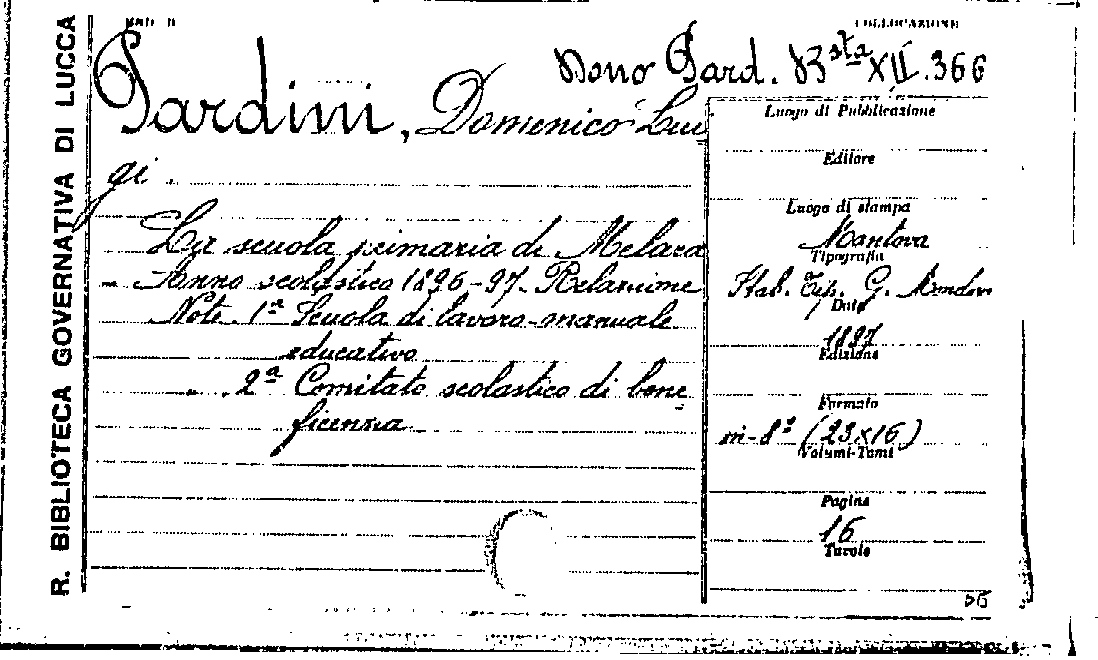 R. BIBLIOTECA GOVERNATIVA DI LUCCA
MOD. B
COLLOCAZIONE
Dono Pard. Bsta XII. 366
Pardini, Domenico Lui
gi
La scuola primaria di Melara
Anno scolastico 1896-97. Relazione
Note 1ª Scuola di lavoro manuale
educativo
„ 2ª Comitato scolastico di bene
ficenza
Luogo di Pubblicazione
Editore
Luogo di stampa
Mantova
Tipografia
Stab. Tip. G. Mondovi
Data
1897
Edizione
Formato
in-8º (23x16)
Volumi-Tomi
Pagine
16
Tavole